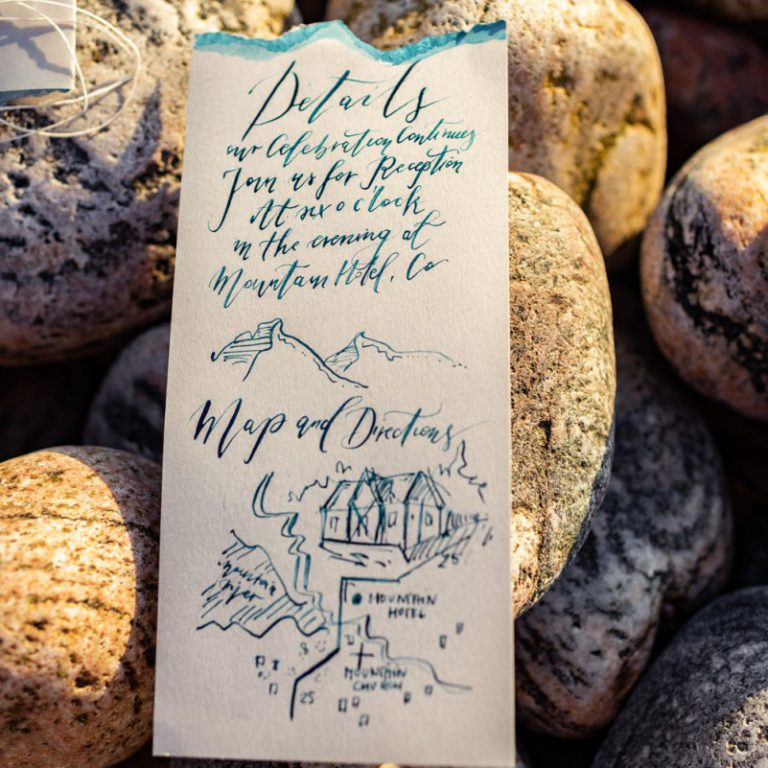 Details
our Celebration Continues
Join us for Reception
At six o'clock
in the evening at
Mountain Hotel, Co
Map and Directions
25
mountain
river
MOUNTAIN
HOTEL
8
MOUNTAIN
CHURCH
25